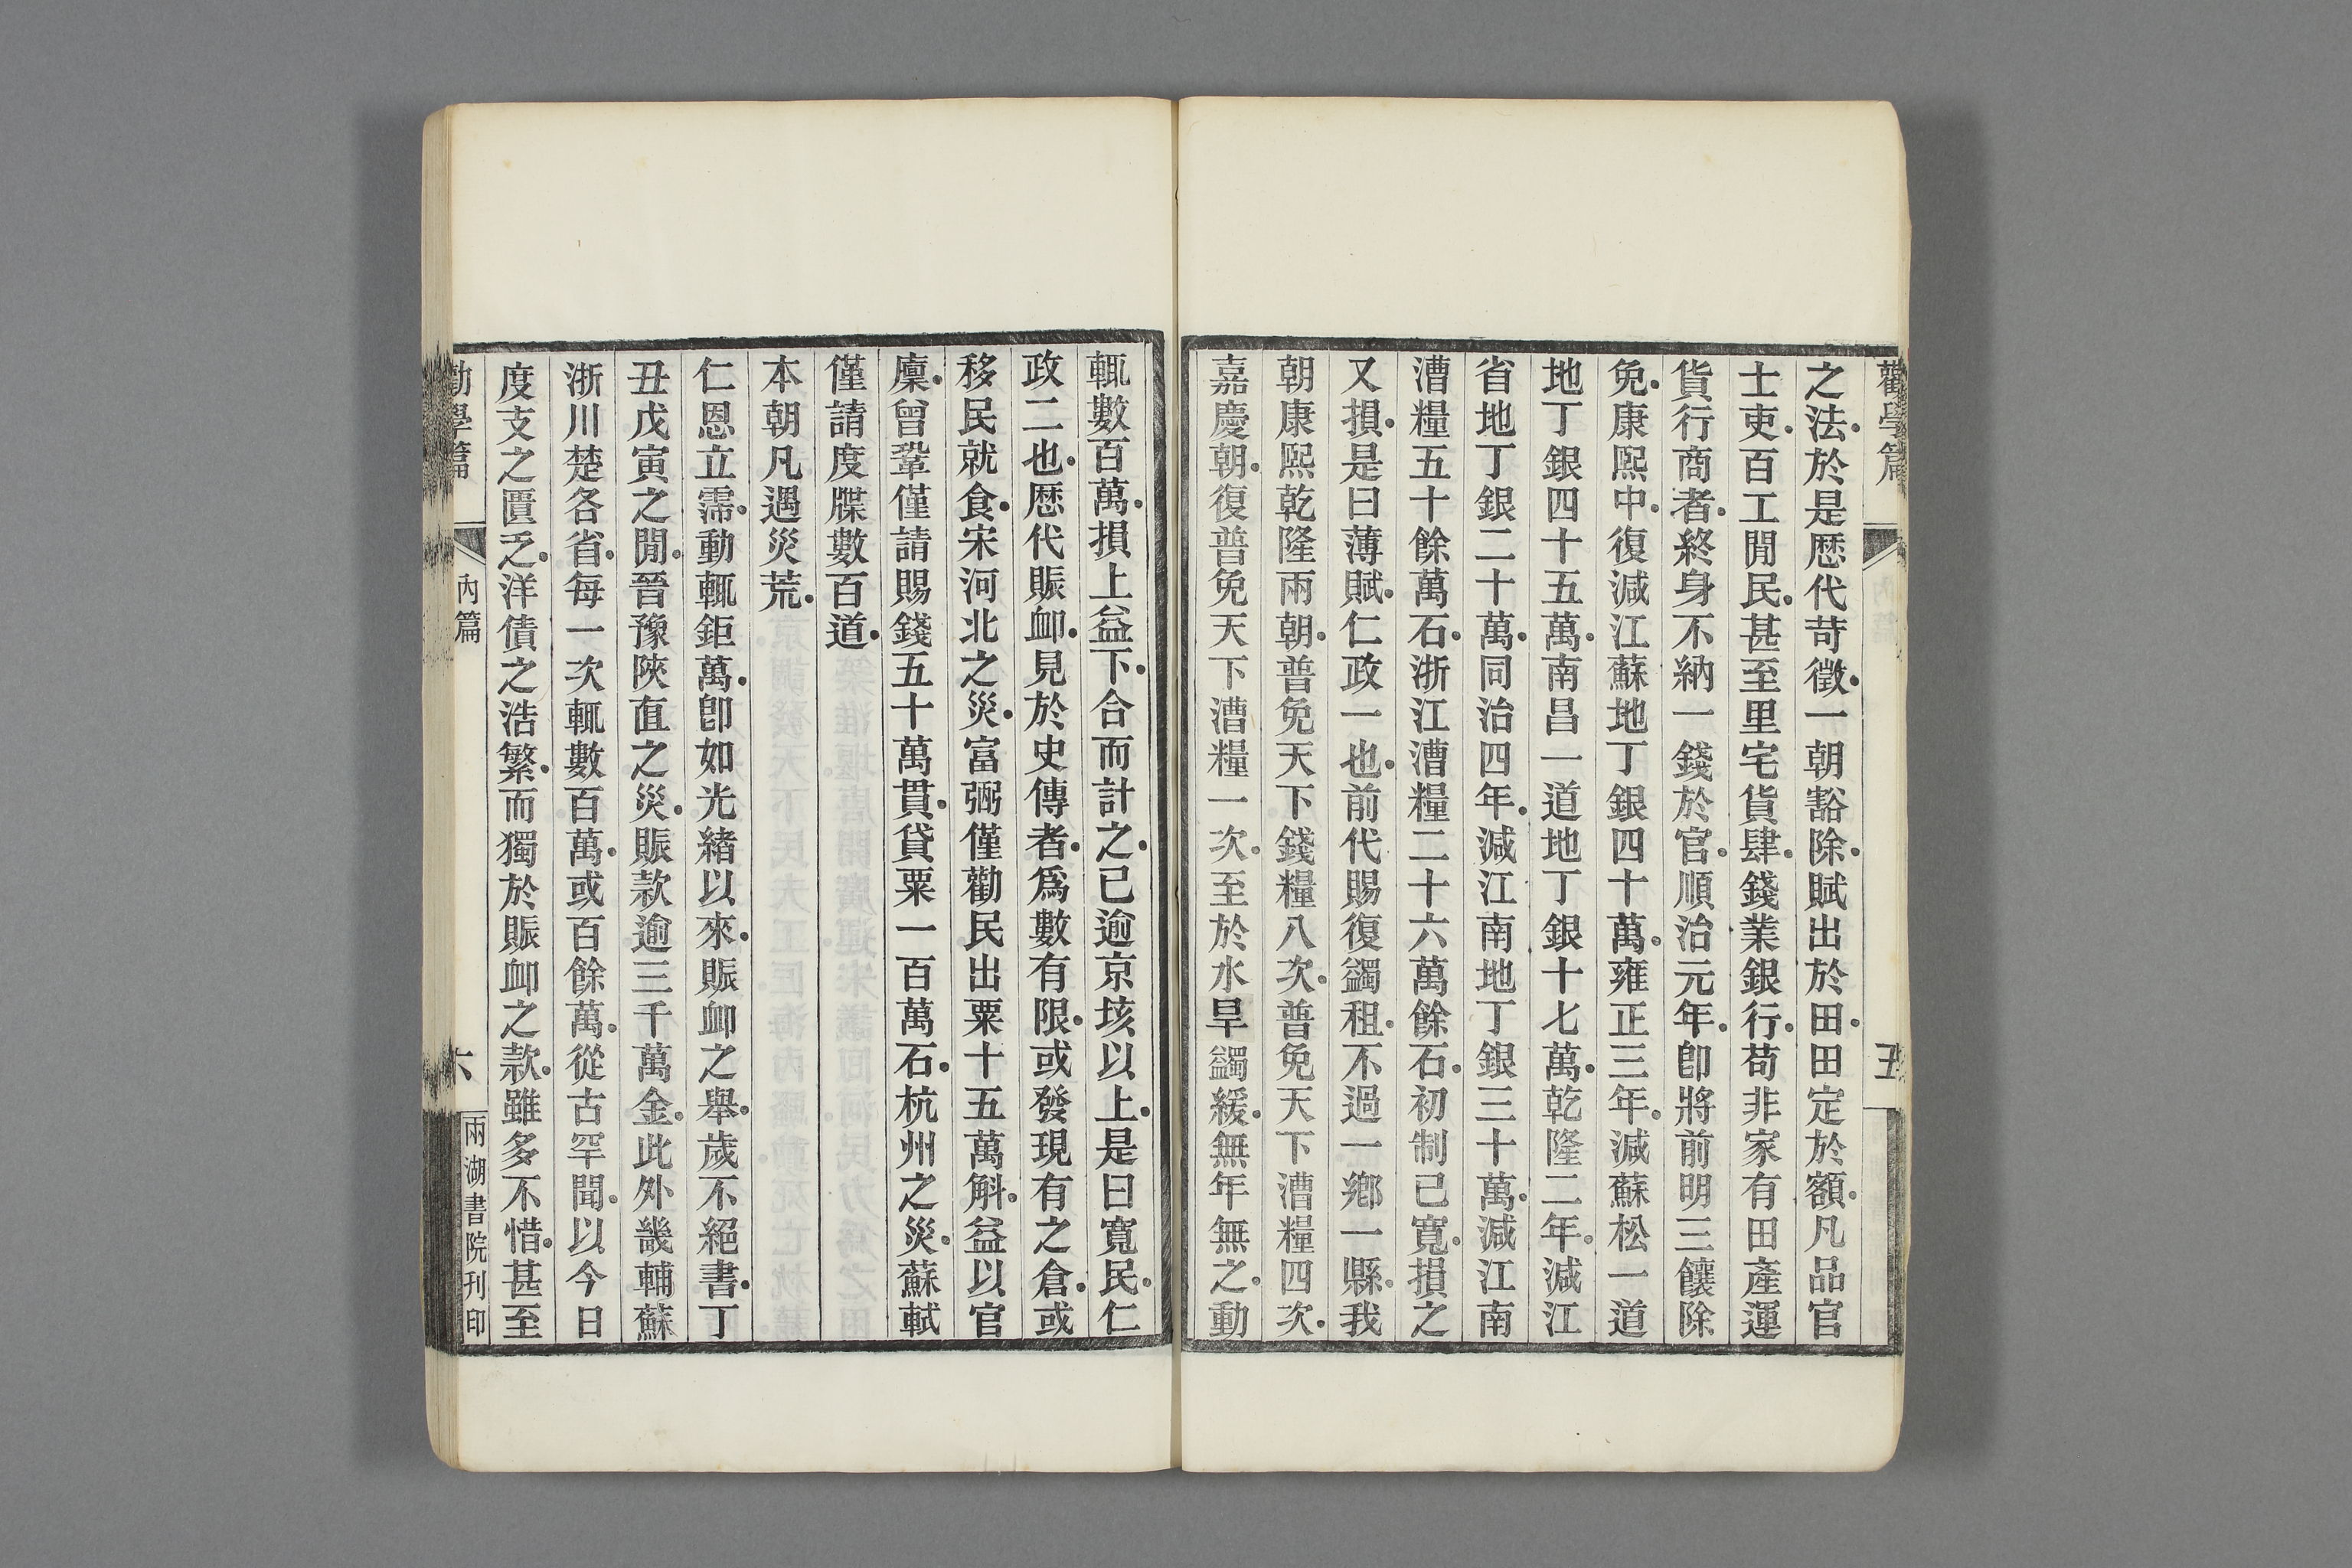 勸學篇
五
之法於是歷代苛徵一朝豁除賦出於田田定於額凡品官
士吏百工閒民甚至里宅貨肆錢業銀行苟非家有田產運
貨行商者終身不納一錢於官順治元年卽將前明三饟除
免康熙中復減江蘇地丁銀四十萬雍正三年減蘇松一道
地丁銀四十五萬南昌一道地丁銀十七萬乾隆二年減江
省地丁銀二十萬同治四年減江南地丁銀三十萬減江南
漕糧五十餘萬石浙江漕糧二十六萬餘石初制已寬損之
又損是曰薄賦仁政一也前代賜復蠲租不過一鄉一縣我
朝康熙乾隆兩朝普免天下錢糧八次普免天下漕糧四次
嘉慶朝復普免天下漕糧一次至於水旱蠲緩無年無之動
輒數百萬損上益下合而計之已逾京垓以上是曰寬民仁
政二也歷代賑卹見於史傳者爲數有限或發現有之倉或
移民就食宋河北之災富弼僅勸民出粟十五萬斛益以官
廩曾鞏僅請賜錢五十萬貫貸粟一百萬石杭州之災蘇軾
僅請度牒數百道
本朝凡遇災荒
仁恩立霈動輒鉅萬卽如光緒以來賑卹之舉歲不絕書丁
丑戊寅之閒晉豫陝直之災賑款逾三千萬金此外畿輔蘇
浙川楚各省每一次輒數百萬或百餘萬從古罕聞以今日
度支之匱乏洋債之浩繁而獨於賑卹之款雖多不惜甚至
勸學篇
內篇
六
兩湖書院刊印